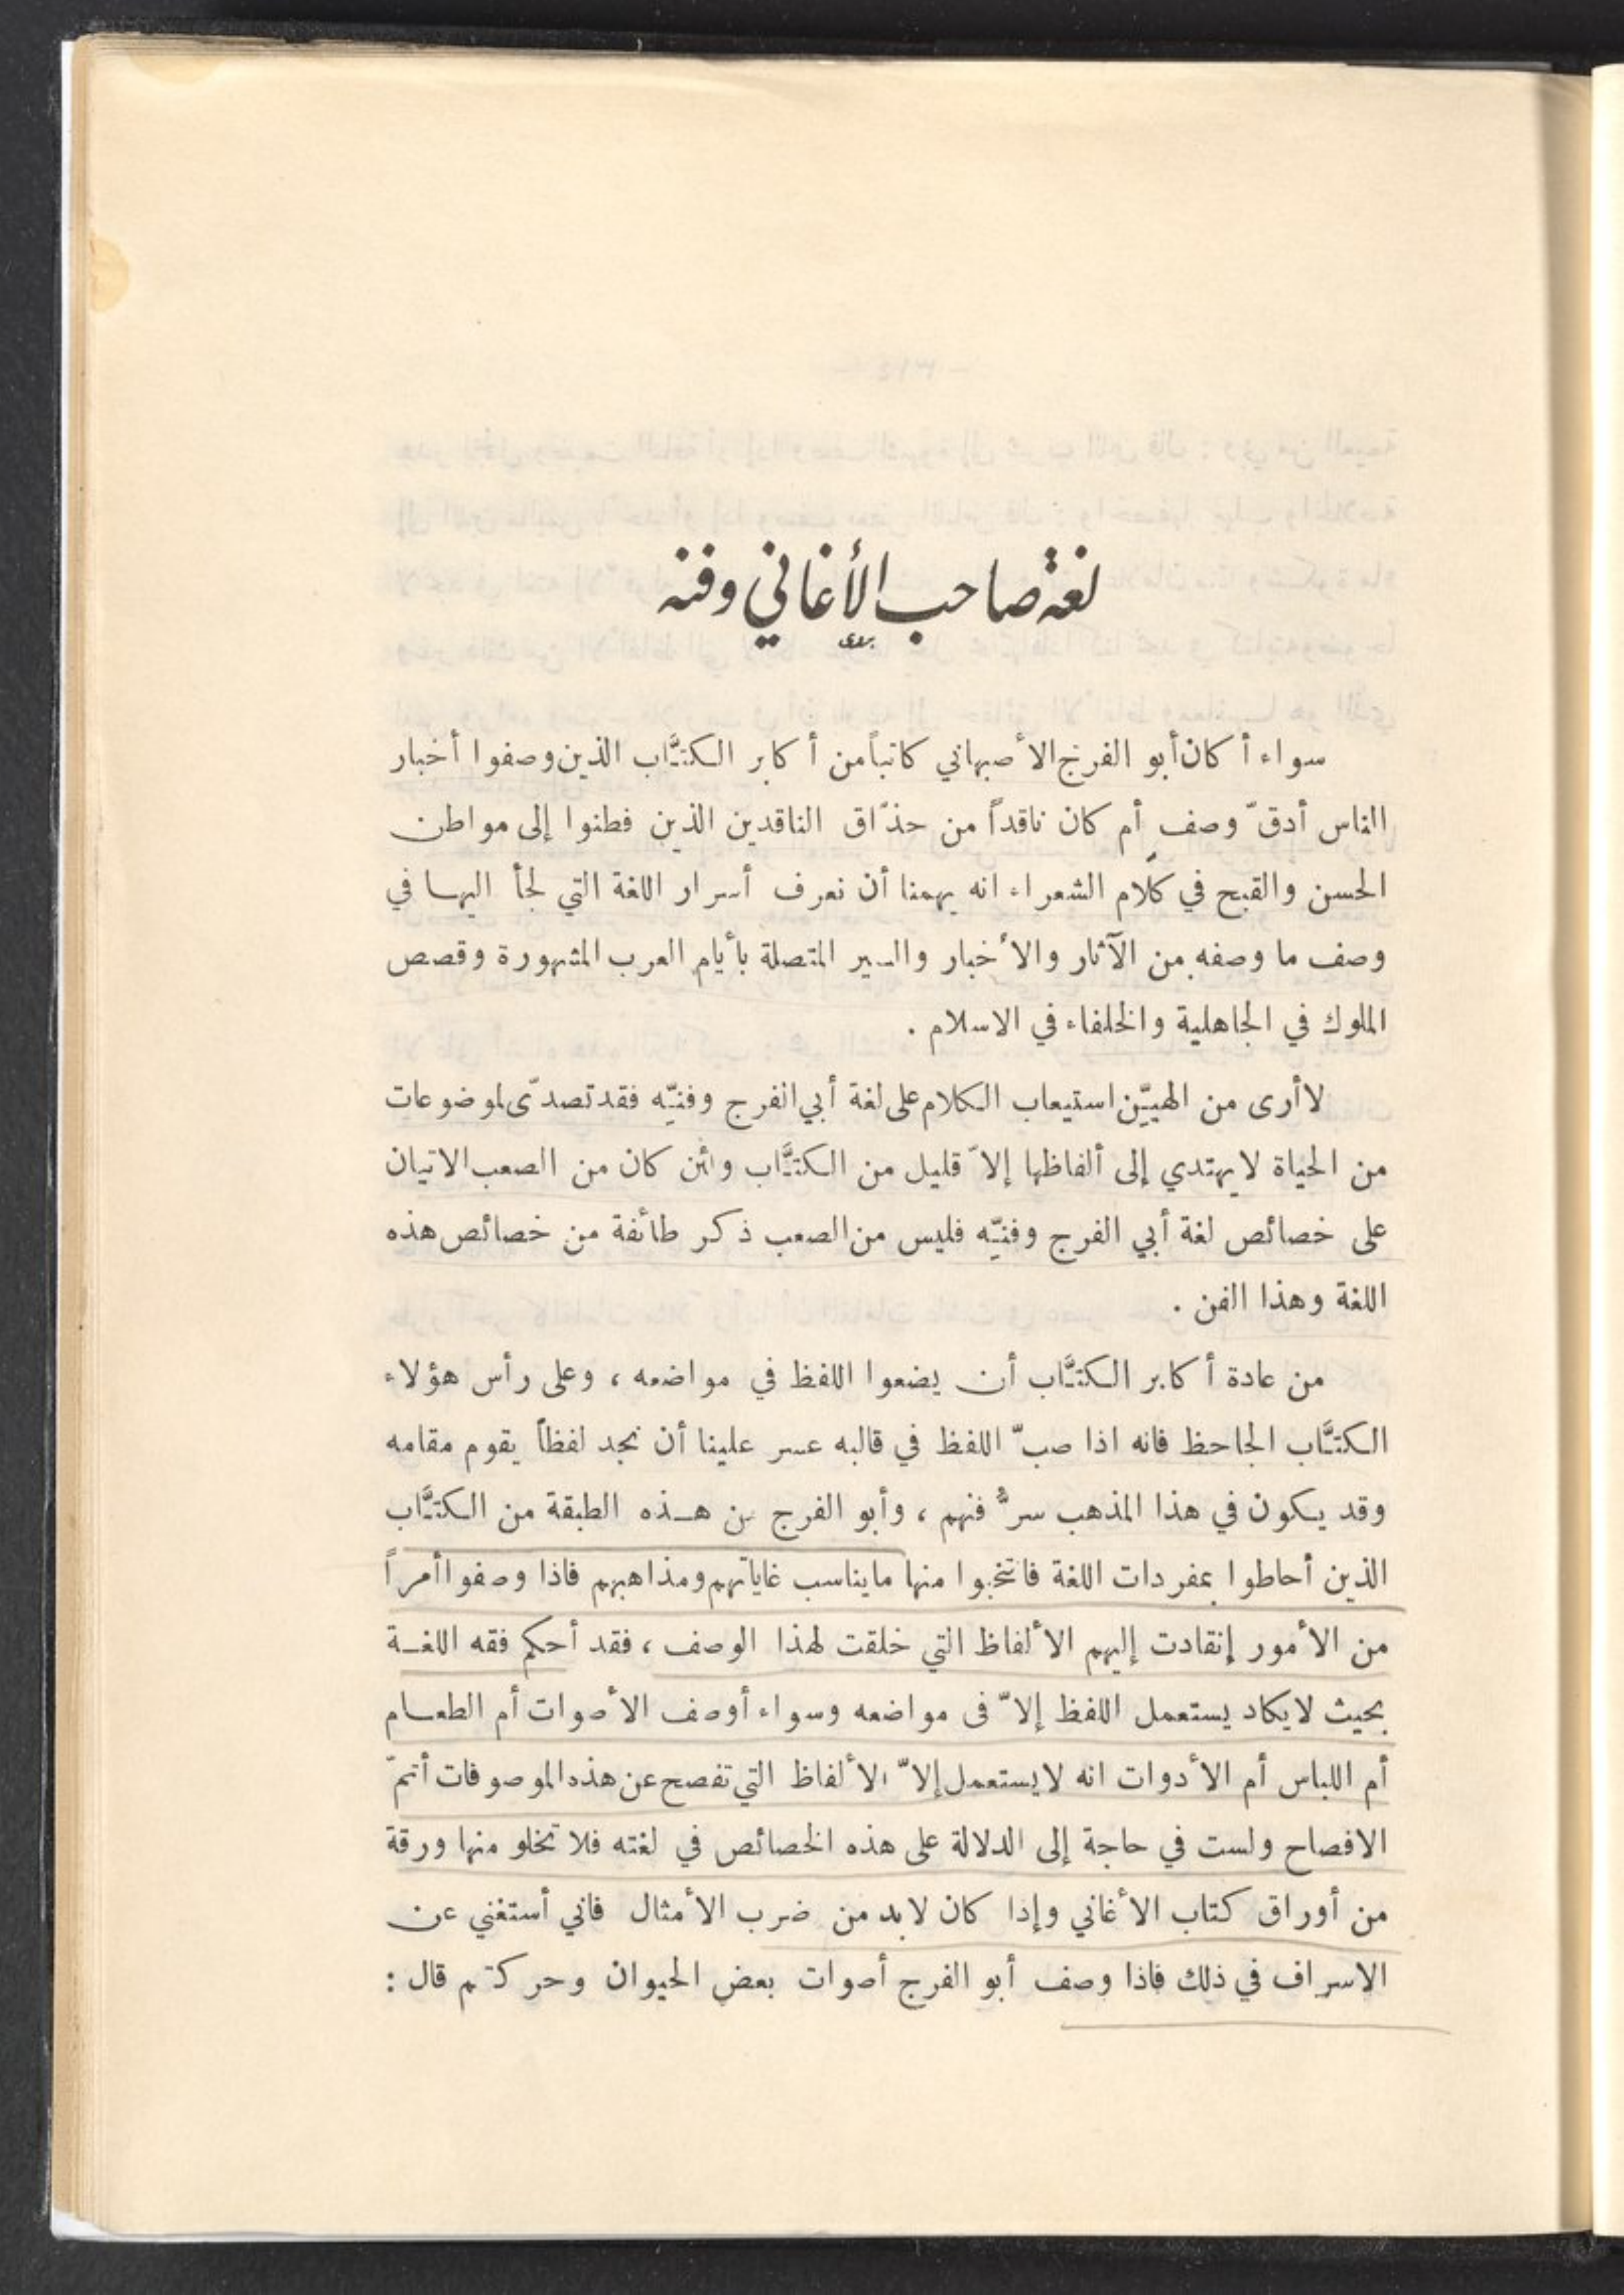 لغة صاحب الأغاني وفنه
سواء أكان أبو الفرج الأصبهاني كاتباً من أكابر الكتَّاب الذين وصفوا أخبار
الناس أدقّ وصف أم كان ناقداً من حذّاق الناقدين الذين فطنوا إلى مواطن
الحسن والقبح في كلام الشعراء انه يهمنا أن نعرف أسرار اللغة التي لجأ اليها في
وصف ما وصفه من الآثار والأخبار والسير المتصلة بأيام العرب المشهورة وقصص
الملوك في الجاهلية والخلفاء في الاسلام .
لا أرى من الهيّن استيعاب الكلام على لغة أبي الفرج وفنّيه فقد تصدّى لموضوعات
من الحياة لا يهتدي إلى ألفاظها إلاّ قليل من الكتَّاب ولئن كان من الصعب الاتيان
على خصائص لغة أبي الفرج وفنّيه فليس من الصعب ذكر طائفة من خصائص هذه
اللغة وهذا الفن .
من عادة أكابر الكتَّاب أن يضعوا اللفظ في مواضعه ، وعلى رأس هؤلاء
الكتَّاب الجاحظ فانه اذا صبّ اللفظ في قالبه عسر علينا أن نجد لفظاً يقوم مقامه
وقد يكون في هذا المذهب سرُّ فنهم ، وأبو الفرج من هذه الطبقة من الكتَّاب
الذين أحاطوا بمفردات اللغة فانتخبوا منها ما يناسب غاياتهم ومذاهبهم فاذا وصفوا أمراً
من الأمور إنقادت إليهم الألفاظ التي خلقت لهذا الوصف ، فقد أحكم فقه اللغة
بحيث لا يكاد يستعمل اللفظ إلاّ في مواضعه وسواء أوصف الأصوات أم الطعام
أم اللباس أم الأدوات انه لا يستعمل إلاّ الألفاظ التي تفصح عن هذه الموصوفات أتمّ
الافصاح ولست في حاجة إلى الدلالة على هذه الخصائص في لغته فلا تخلو منها ورقة
من أوراق كتاب الأغاني وإذا كان لا بد من ضرب الأمثال فاني أستغني عن
الاسراف في ذلك فاذا وصف أبو الفرج أصوات بعض الحيوان وحركتهم قال :